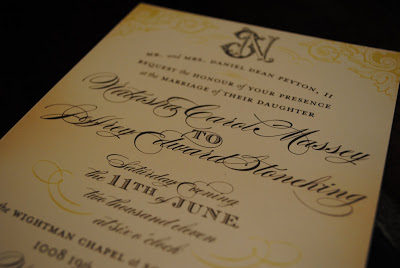 JN
MR. AND MRS. DANIEL DEAN PEYTON, II
REQUEST THE HONOUR OF YOUR PRESENCE
AT THE MARRIAGE OF THEIR DAUGHTER
Natasha Carol Massey
TO
Jeffrey Edward Stoneking
Saturday Evening
THE
11TH OF JUNE
two thousand eleven
at six o'clock
THE WIGHTMAN CHAPEL AT
1008 19TH